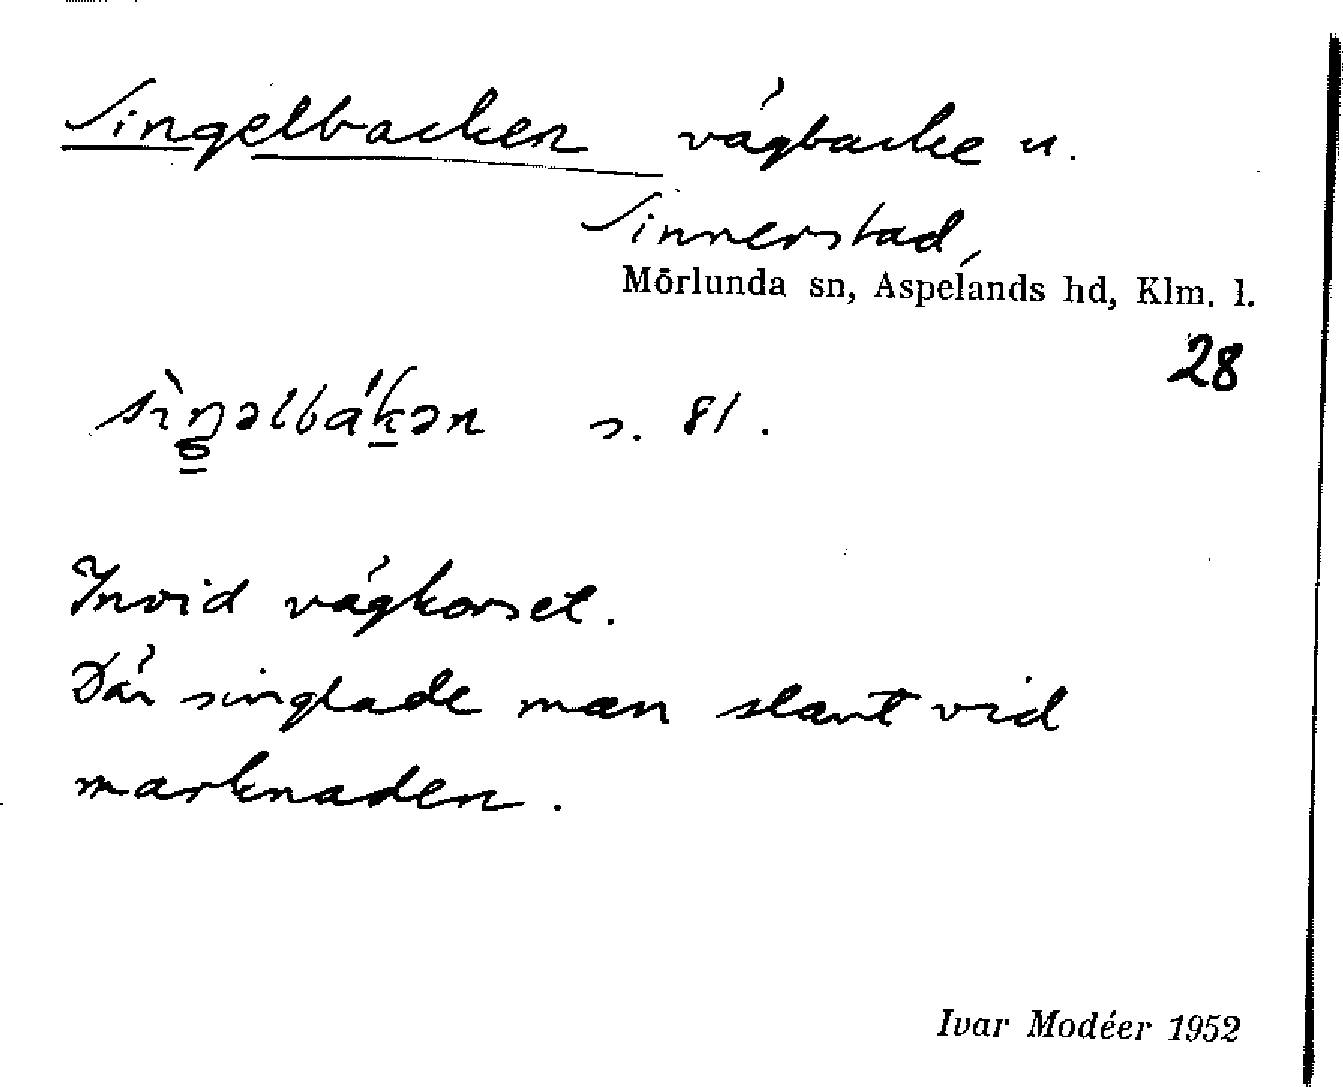 Singelbacken vägbacke u.
Sinnerstad,
Mörlunda sn, Aspelands hd, Klm. l.
28
sìŋəlbák̲ən s. 81.
Invid vägkorset.
Där singlade man slant vid
marknaden.
Ivar Modéer 1952